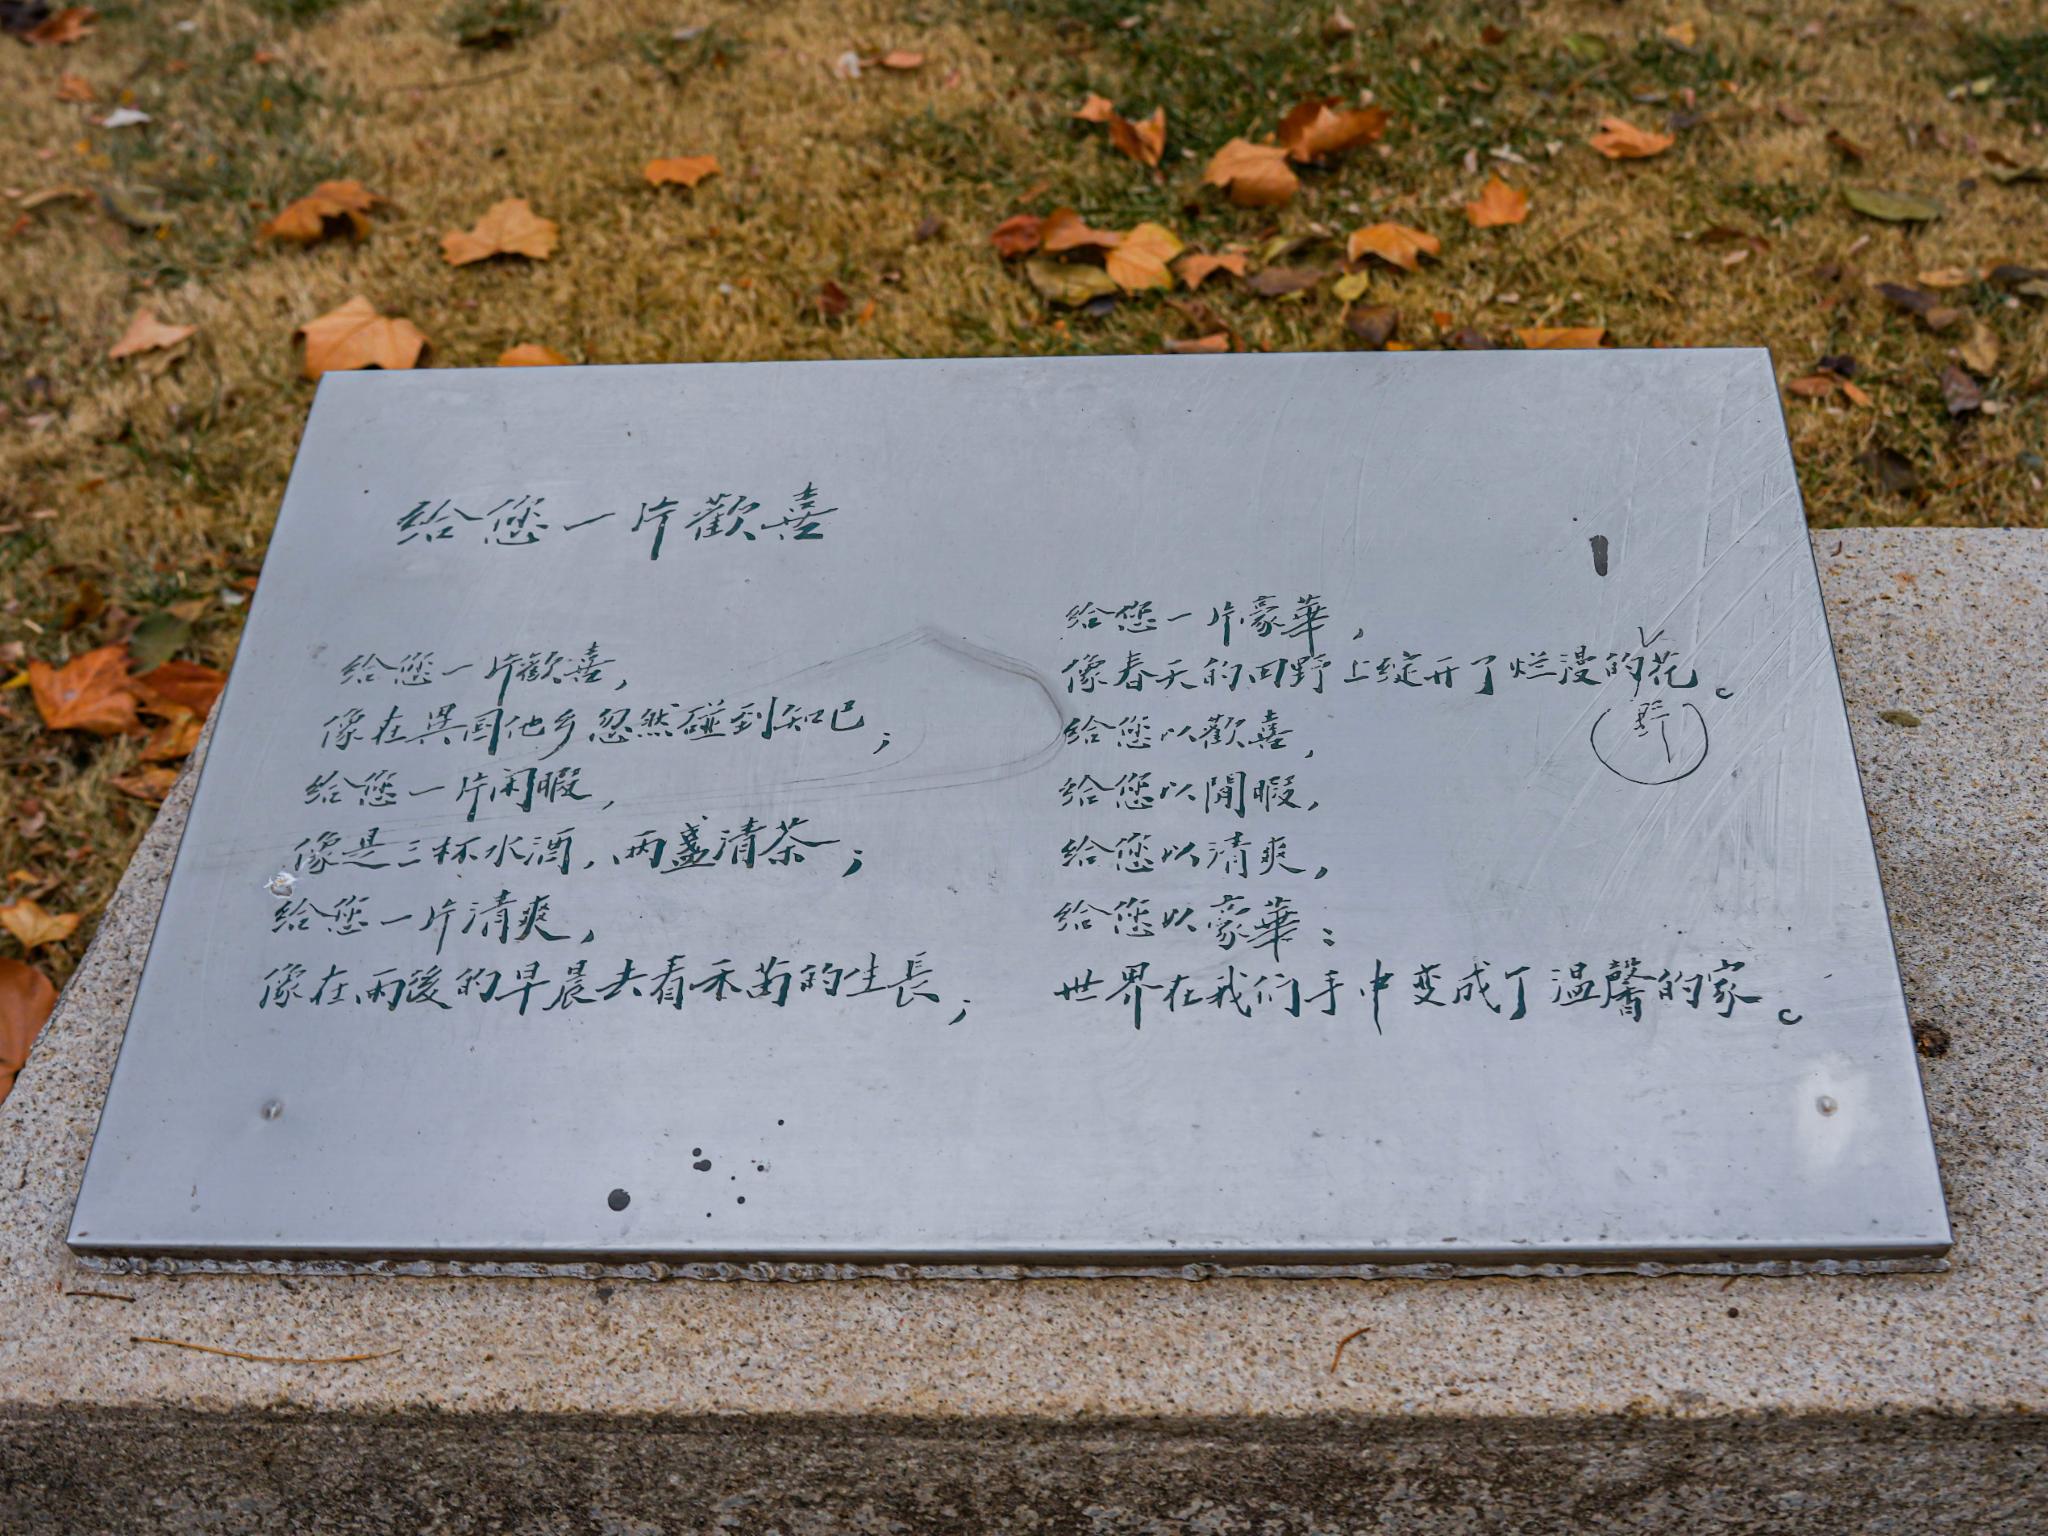 给您一片歡喜
给您一片歡喜，
像在異国他乡忽然碰到知己；
给您一片闲暇，
像是三杯水酒，两盏清茶；
给您一片清爽，
像在雨後的早晨去看禾苗的生長；
给您一片豪華，
像春天的田野上绽开了烂漫的花。
野
给您以歡喜，
给您以閒暇，
给您以清爽，
给您以豪華：
世界在我们手中变成了温馨的家。